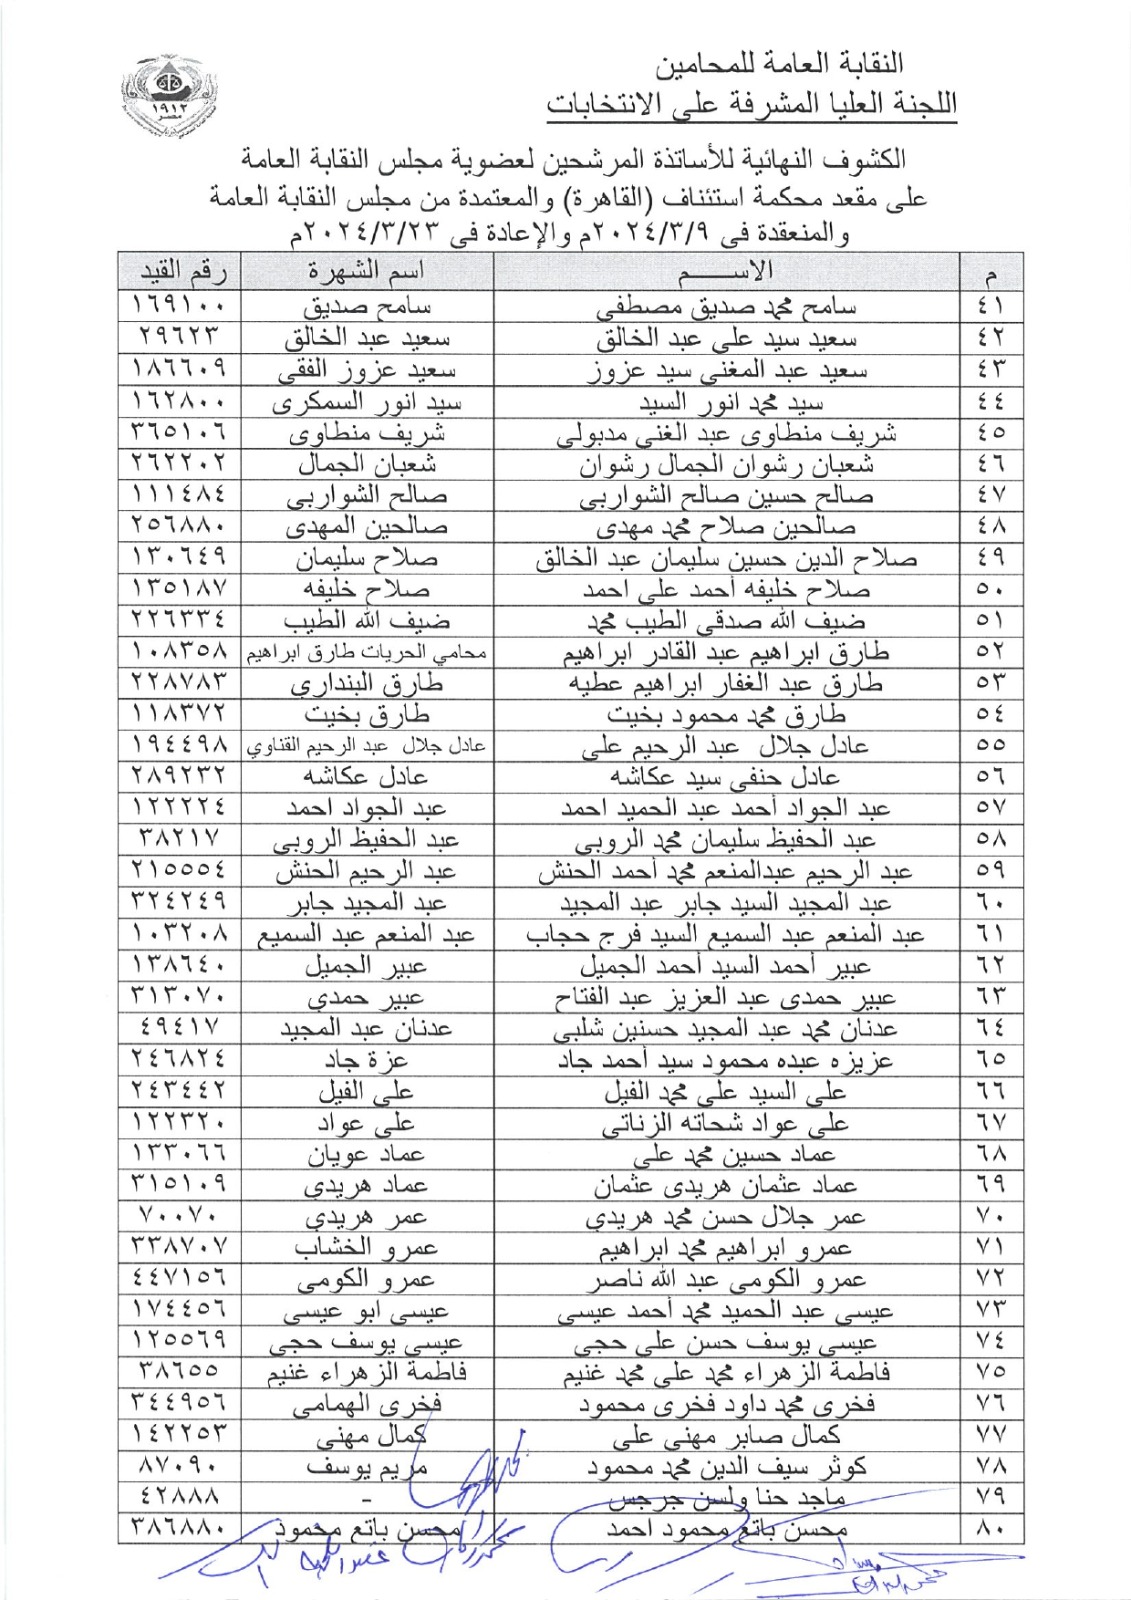 النقابة العامة للمحامين
اللجنة العليا المشرفة على الانتخابات
١٩١٢
مصر
الكشوف النهائية للأساتذة المرشحين لعضوية مجلس النقابة العامة
على مقعد محكمة استئناف (القاهرة) والمعتمدة من مجلس النقابة العامة
والمنعقدة فى ٢٠٢٤/٣/٩م والإعادة فى ٢٠٢٤/٣/٢٣م
م الاســـــم اسم الشهرة رقم القيد
٤١ سامح محمد صديق مصطفى سامح صديق ١٦٩١٠٠
٤٢ سعيد سيد على عبد الخالق سعيد عبد الخالق ٢٩٦٢٣
٤٣ سعيد عبد المغنى سيد عزوز سعيد عزوز الفقى ١٨٦٦٠٩
٤٤ سيد محمد انور السيد سيد انور السمكرى ١٦٢٨٠٠
٤٥ شريف منطاوى عبد الغنى مدبولى شريف منطاوى ٣٦٥١٠٦
٤٦ شعبان رشوان الجمال رشوان شعبان الجمال ٢٦٢٢٠٢
٤٧ صالح حسين صالح الشواربى صالح الشواربى ١١١٤٨٤
٤٨ صالحين صلاح محمد مهدى صالحين المهدى ٢٥٦٨٨٠
٤٩ صلاح الدين حسين سليمان عبد الخالق صلاح سليمان ١٣٠٦٤٩
٥٠ صلاح خليفه أحمد على احمد صلاح خليفه ١٣٥١٨٧
٥١ ضيف الله صدقى الطيب محمد ضيف الله الطيب ٢٢٦٣٣٤
٥٢ طارق ابراهيم عبد القادر ابراهيم محامي الحريات طارق ابراهيم ١٠٨٣٥٨
٥٣ طارق عبد الغفار ابراهيم عطيه طارق البنداري ٢٢٨٧٨٣
٥٤ طارق محمد محمود بخيت طارق بخيت ١١٨٣٧٢
٥٥ عادل جلال عبد الرحيم على عادل جلال عبد الرحيم القناوي ١٩٤٤٩٨
٥٦ عادل حنفى سيد عكاشه عادل عكاشه ٢٨٩٢٣٢
٥٧ عبد الجواد أحمد عبد الحميد احمد عبد الجواد احمد ١٢٢٢٢٤
٥٨ عبد الحفيظ سليمان محمد الروبي عبد الحفيظ الروبي ٣٨٢١٧
٥٩ عبد الرحيم عبدالمنعم محمد أحمد الحنش عبد الرحيم الحنش ٢١٥٥٥٤
٦٠ عبد المجيد السيد جابر عبد المجيد عبد المجيد جابر ٣٢٤٢٤٩
٦١ عبد المنعم عبد السميع السيد فرج حجاب عبد المنعم عبد السميع ١٠٣٢٠٨
٦٢ عبير أحمد السيد أحمد الجميل عبير الجميل ١٣٨٦٤٠
٦٣ عبير حمدى عبد العزيز عبد الفتاح عبير حمدي ٣١٣٠٧٠
٦٤ عدنان محمد عبد المجيد حسنين شلبي عدنان عبد المجيد ٤٩٤١٧
٦٥ عزيزه عبده محمود سيد أحمد جاد عزة جاد ٢٤٦٨٢٤
٦٦ على السيد على محمد الفيل على الفيل ٢٤٣٤٤٢
٦٧ على عواد شحاته الزناتى على عواد ١٢٢٣٢٠
٦٨ عماد حسين محمد على عماد عويان ١٣٣٠٦٦
٦٩ عماد عثمان هريدى عثمان عماد هريدي ٣١٥١٠٩
٧٠ عمر جلال حسن محمد هريدي عمر هريدي ٧٠٠٧٠
٧١ عمرو ابراهيم محمد ابراهيم عمرو الخشاب ٣٣٨٧٠٧
٧٢ عمرو الكومى عبد الله ناصر عمرو الكومى ٤٤٧١٥٦
٧٣ عيسى عبد الحميد محمد أحمد عيسى عيسى ابو عيسى ١٧٤٤٥٦
٧٤ عيسى يوسف حسن على حجى عيسى يوسف حجى ١٢٥٥٦٩
٧٥ فاطمة الزهراء محمد على محمد غنيم فاطمة الزهراء غنيم ٣٨٦٥٥
٧٦ فخرى محمد داود فخرى محمود فخرى الهمامى ٣٤٤٩٥٦
٧٧ كمال صابر مهنى على كمال مهنى ١٤٢٢٥٣
٧٨ كوثر سيف الدين محمد محمود مريم يوسف ٨٧٠٩٠
٧٩ ماجد حنا ولسن جرجس - ٤٢٨٨٨
٨٠ محسن باتع محمود احمد محسن باتع محمود ٣٨٦٨٨٠